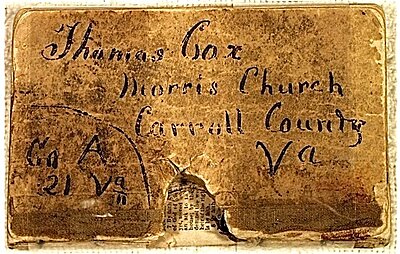 Thomas Cox
Morris Church
Carroll County
Va
Co A
21 Va